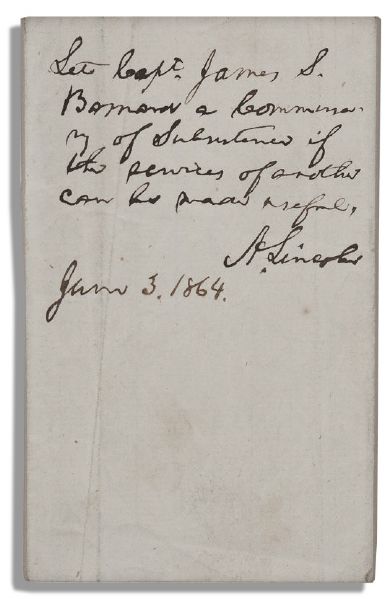 Let Capt. James S.
Barnard a Commissa-
ry of Subsistence if
the services of another
can be made useful.
A. Lincoln
June 3. 1864.